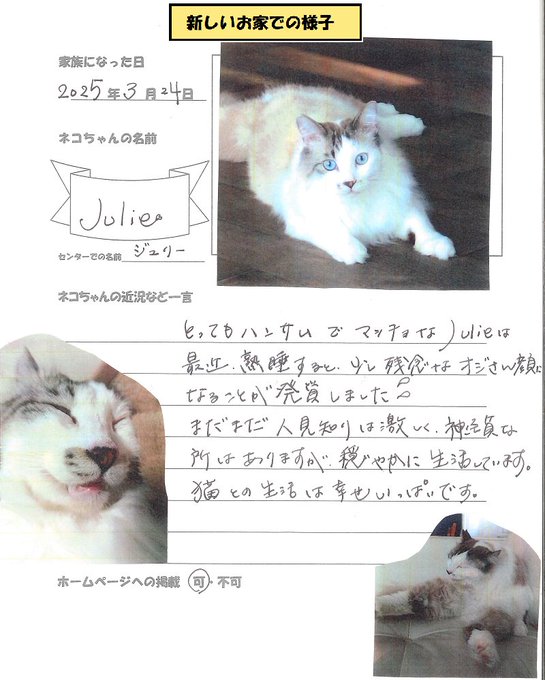 新しいお家での様子
家族になった日
2025年3月24日
ネコちゃんの名前
Julie
センターでの名前 ジュリー
ネコちゃんの近況など一言
とってもハンサムでマッチョなJulieは
最近、熟睡すると、少し残念なオジさん顔に
なることが発覚しました
まだまだ人見知りは激しく、神経質な
所はありますが、穏やかに生活しています。
猫との生活は幸せいっぱいです。
ホームページへの掲載 可・不可